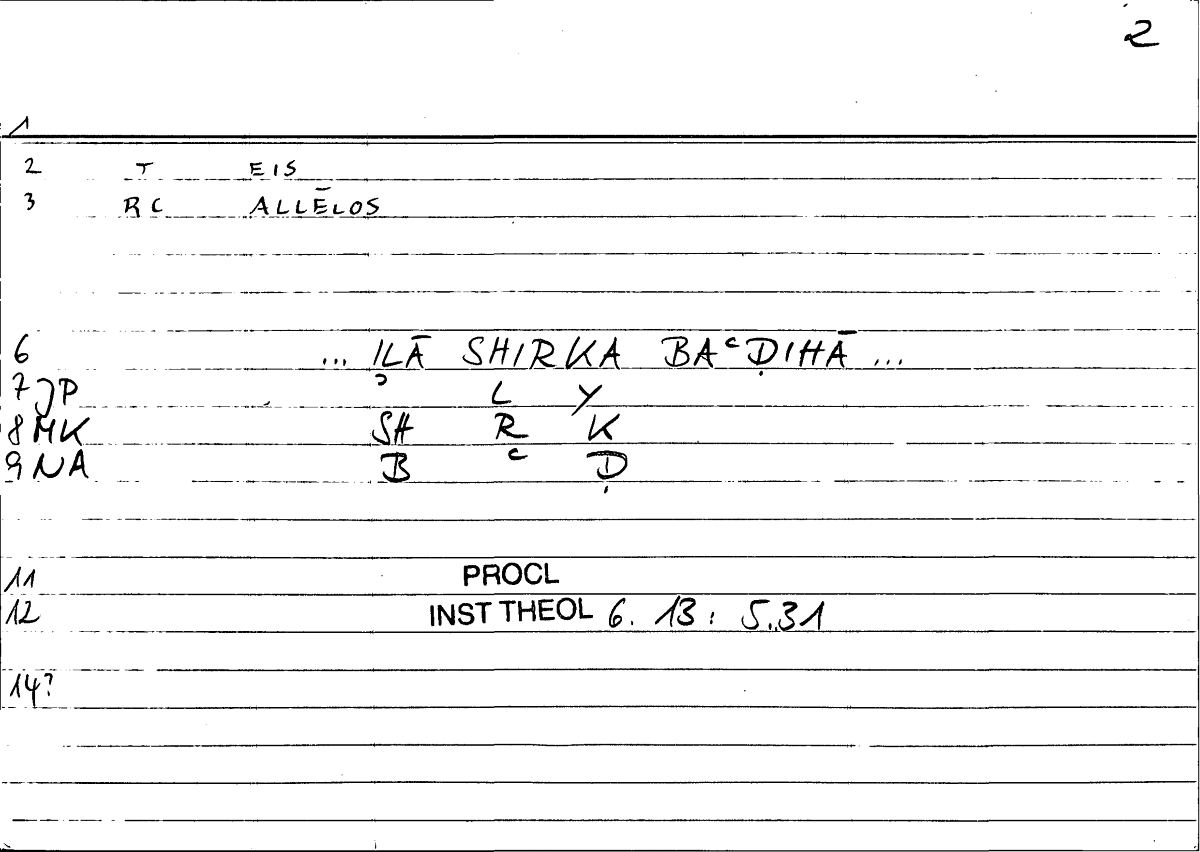 2
1
2 T EIS
3 RC ALLĒLOS
6 ... ILĀ SHIRKA BAᶜḌIHĀ ...
7 JP ʾ L Y
8 MK SH R K
9 NA B ᶜ Ḍ
11 PROCL
12 INST THEOL 6. 13: 5.31
14?